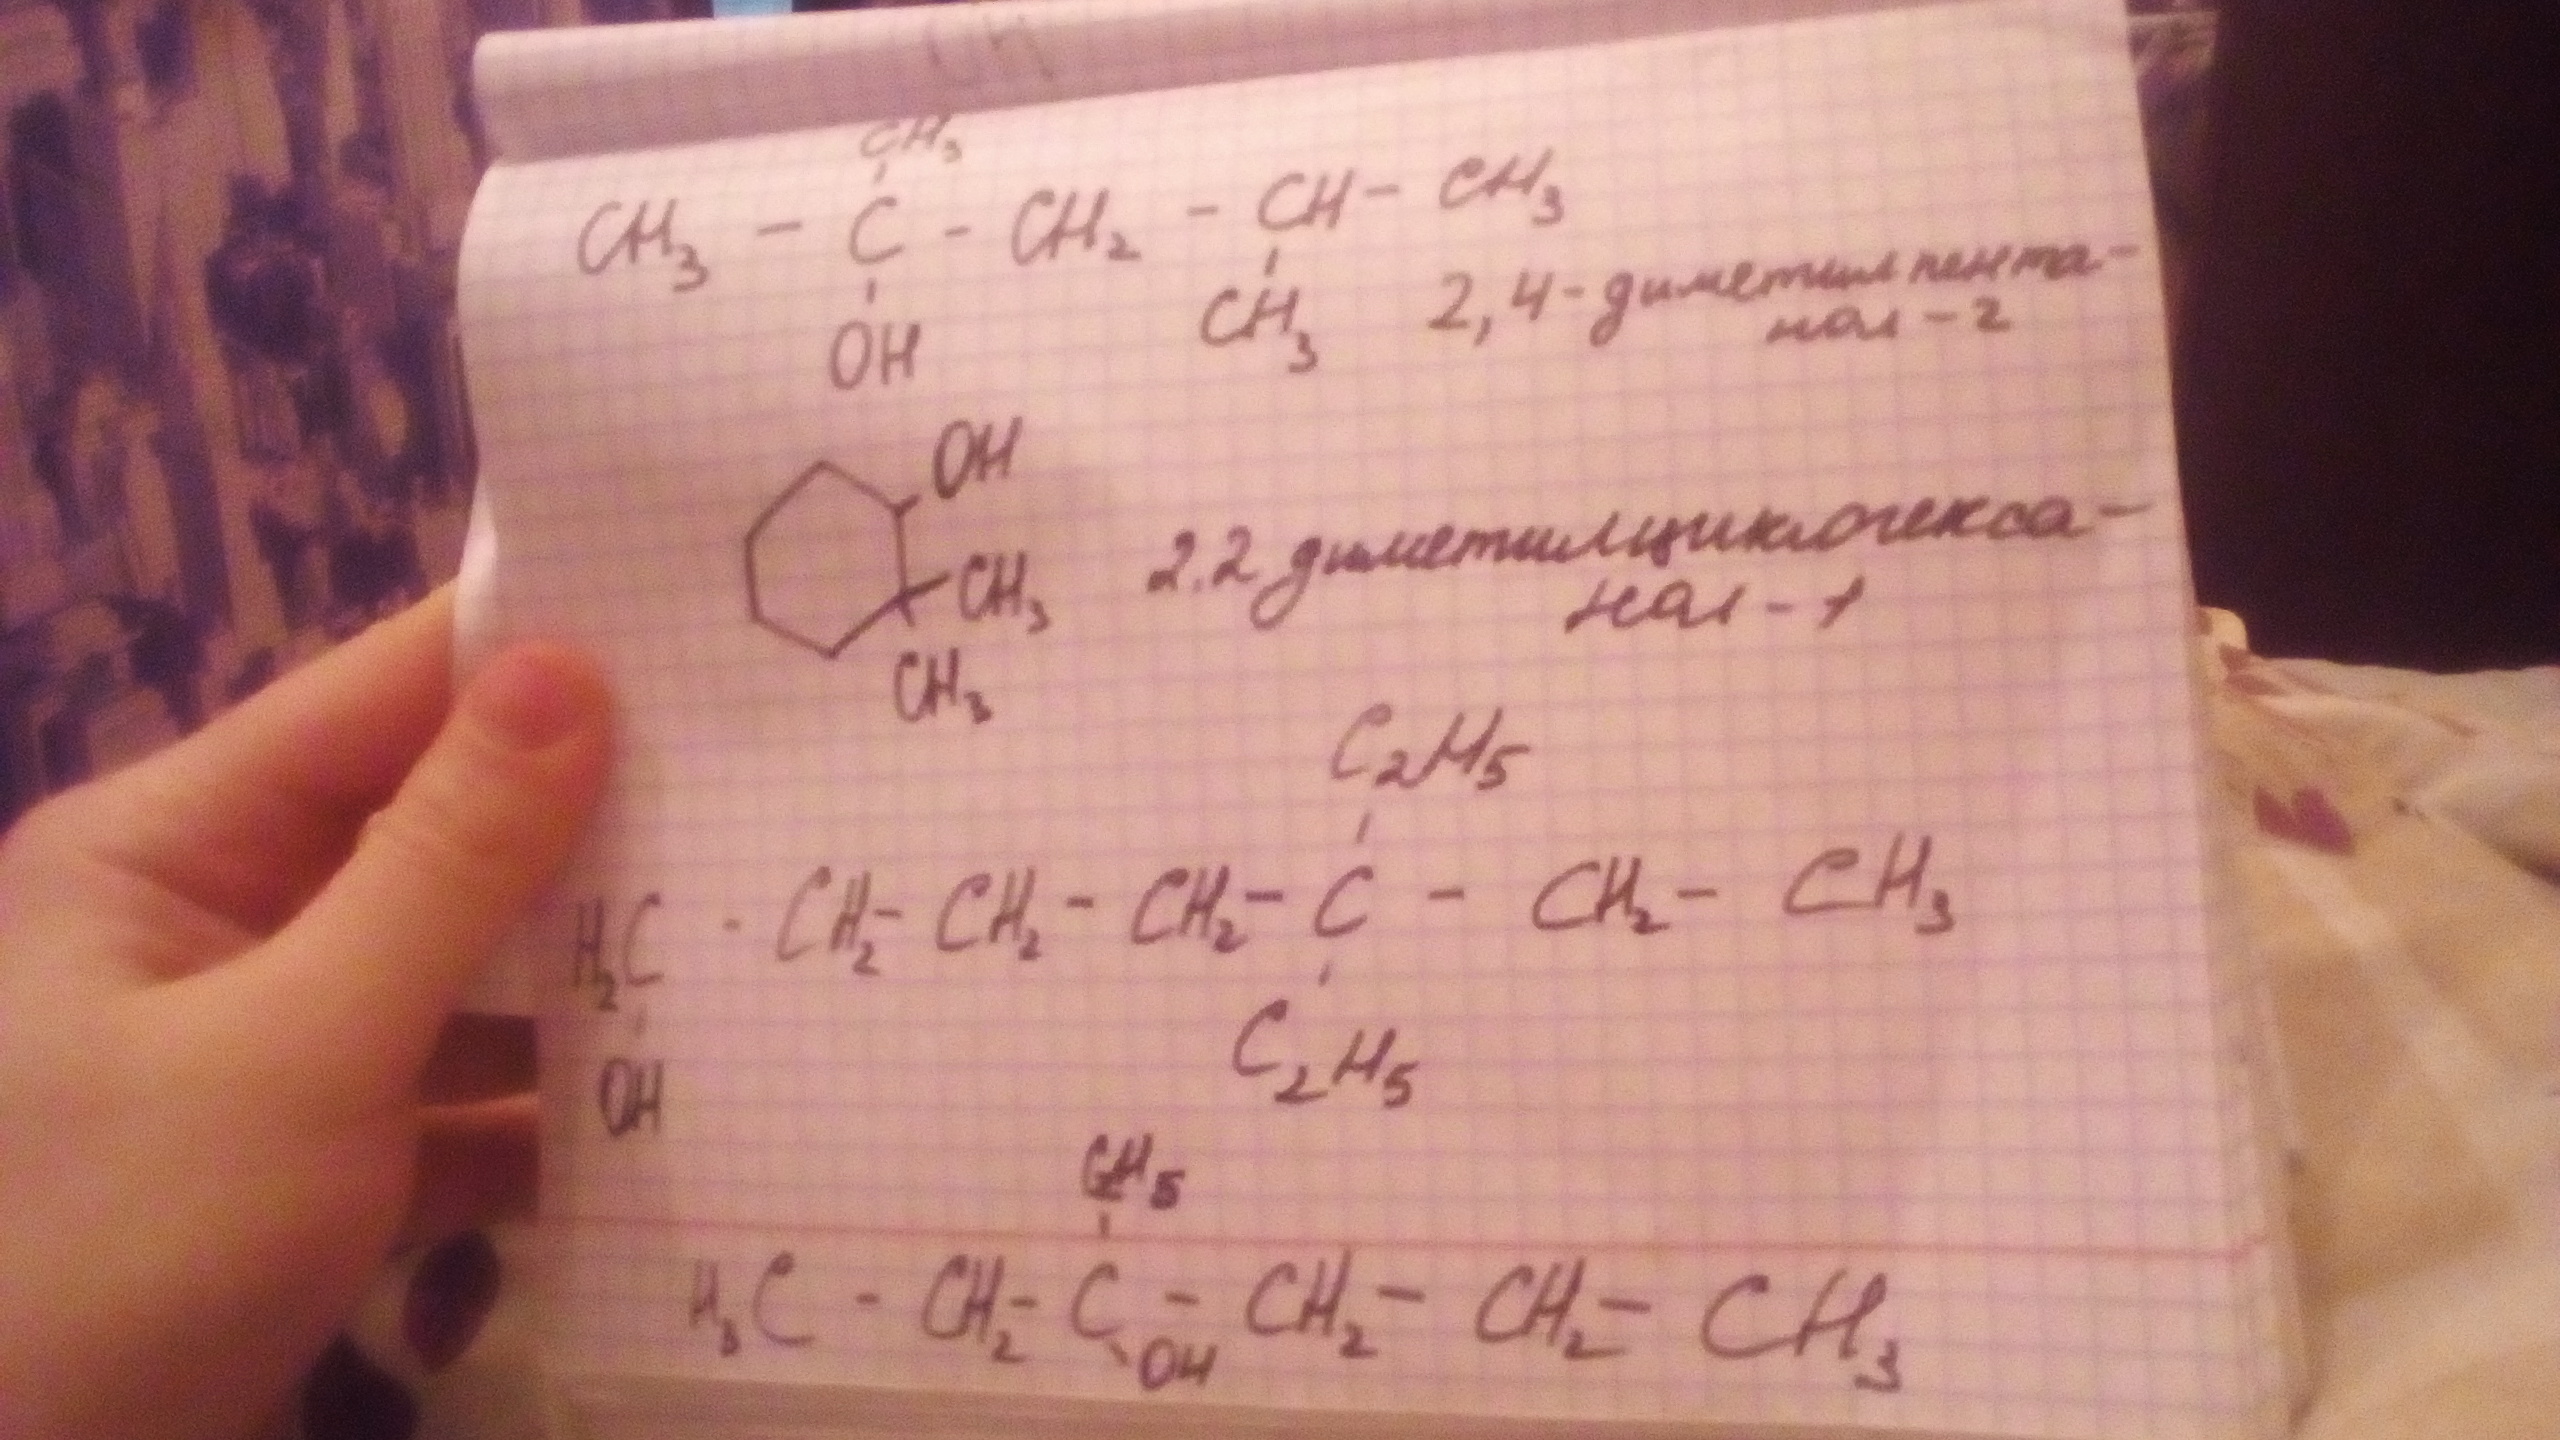 CH₃
CH₃ - C - CH₂ - CH - CH₃
OH CH₃ 2,4-диметилпента-
нол-2
OH
CH₃ 2.2 диметилциклогекса-
нол-1
CH₃
C₂H₅
H₂C - CH₂ - CH₂ - CH₂ - C - CH₂ - CH₃
C₂H₅
OH
C₂H₅
H₃C - CH₂ - C - CH₂ - CH₂ - CH₃
OH